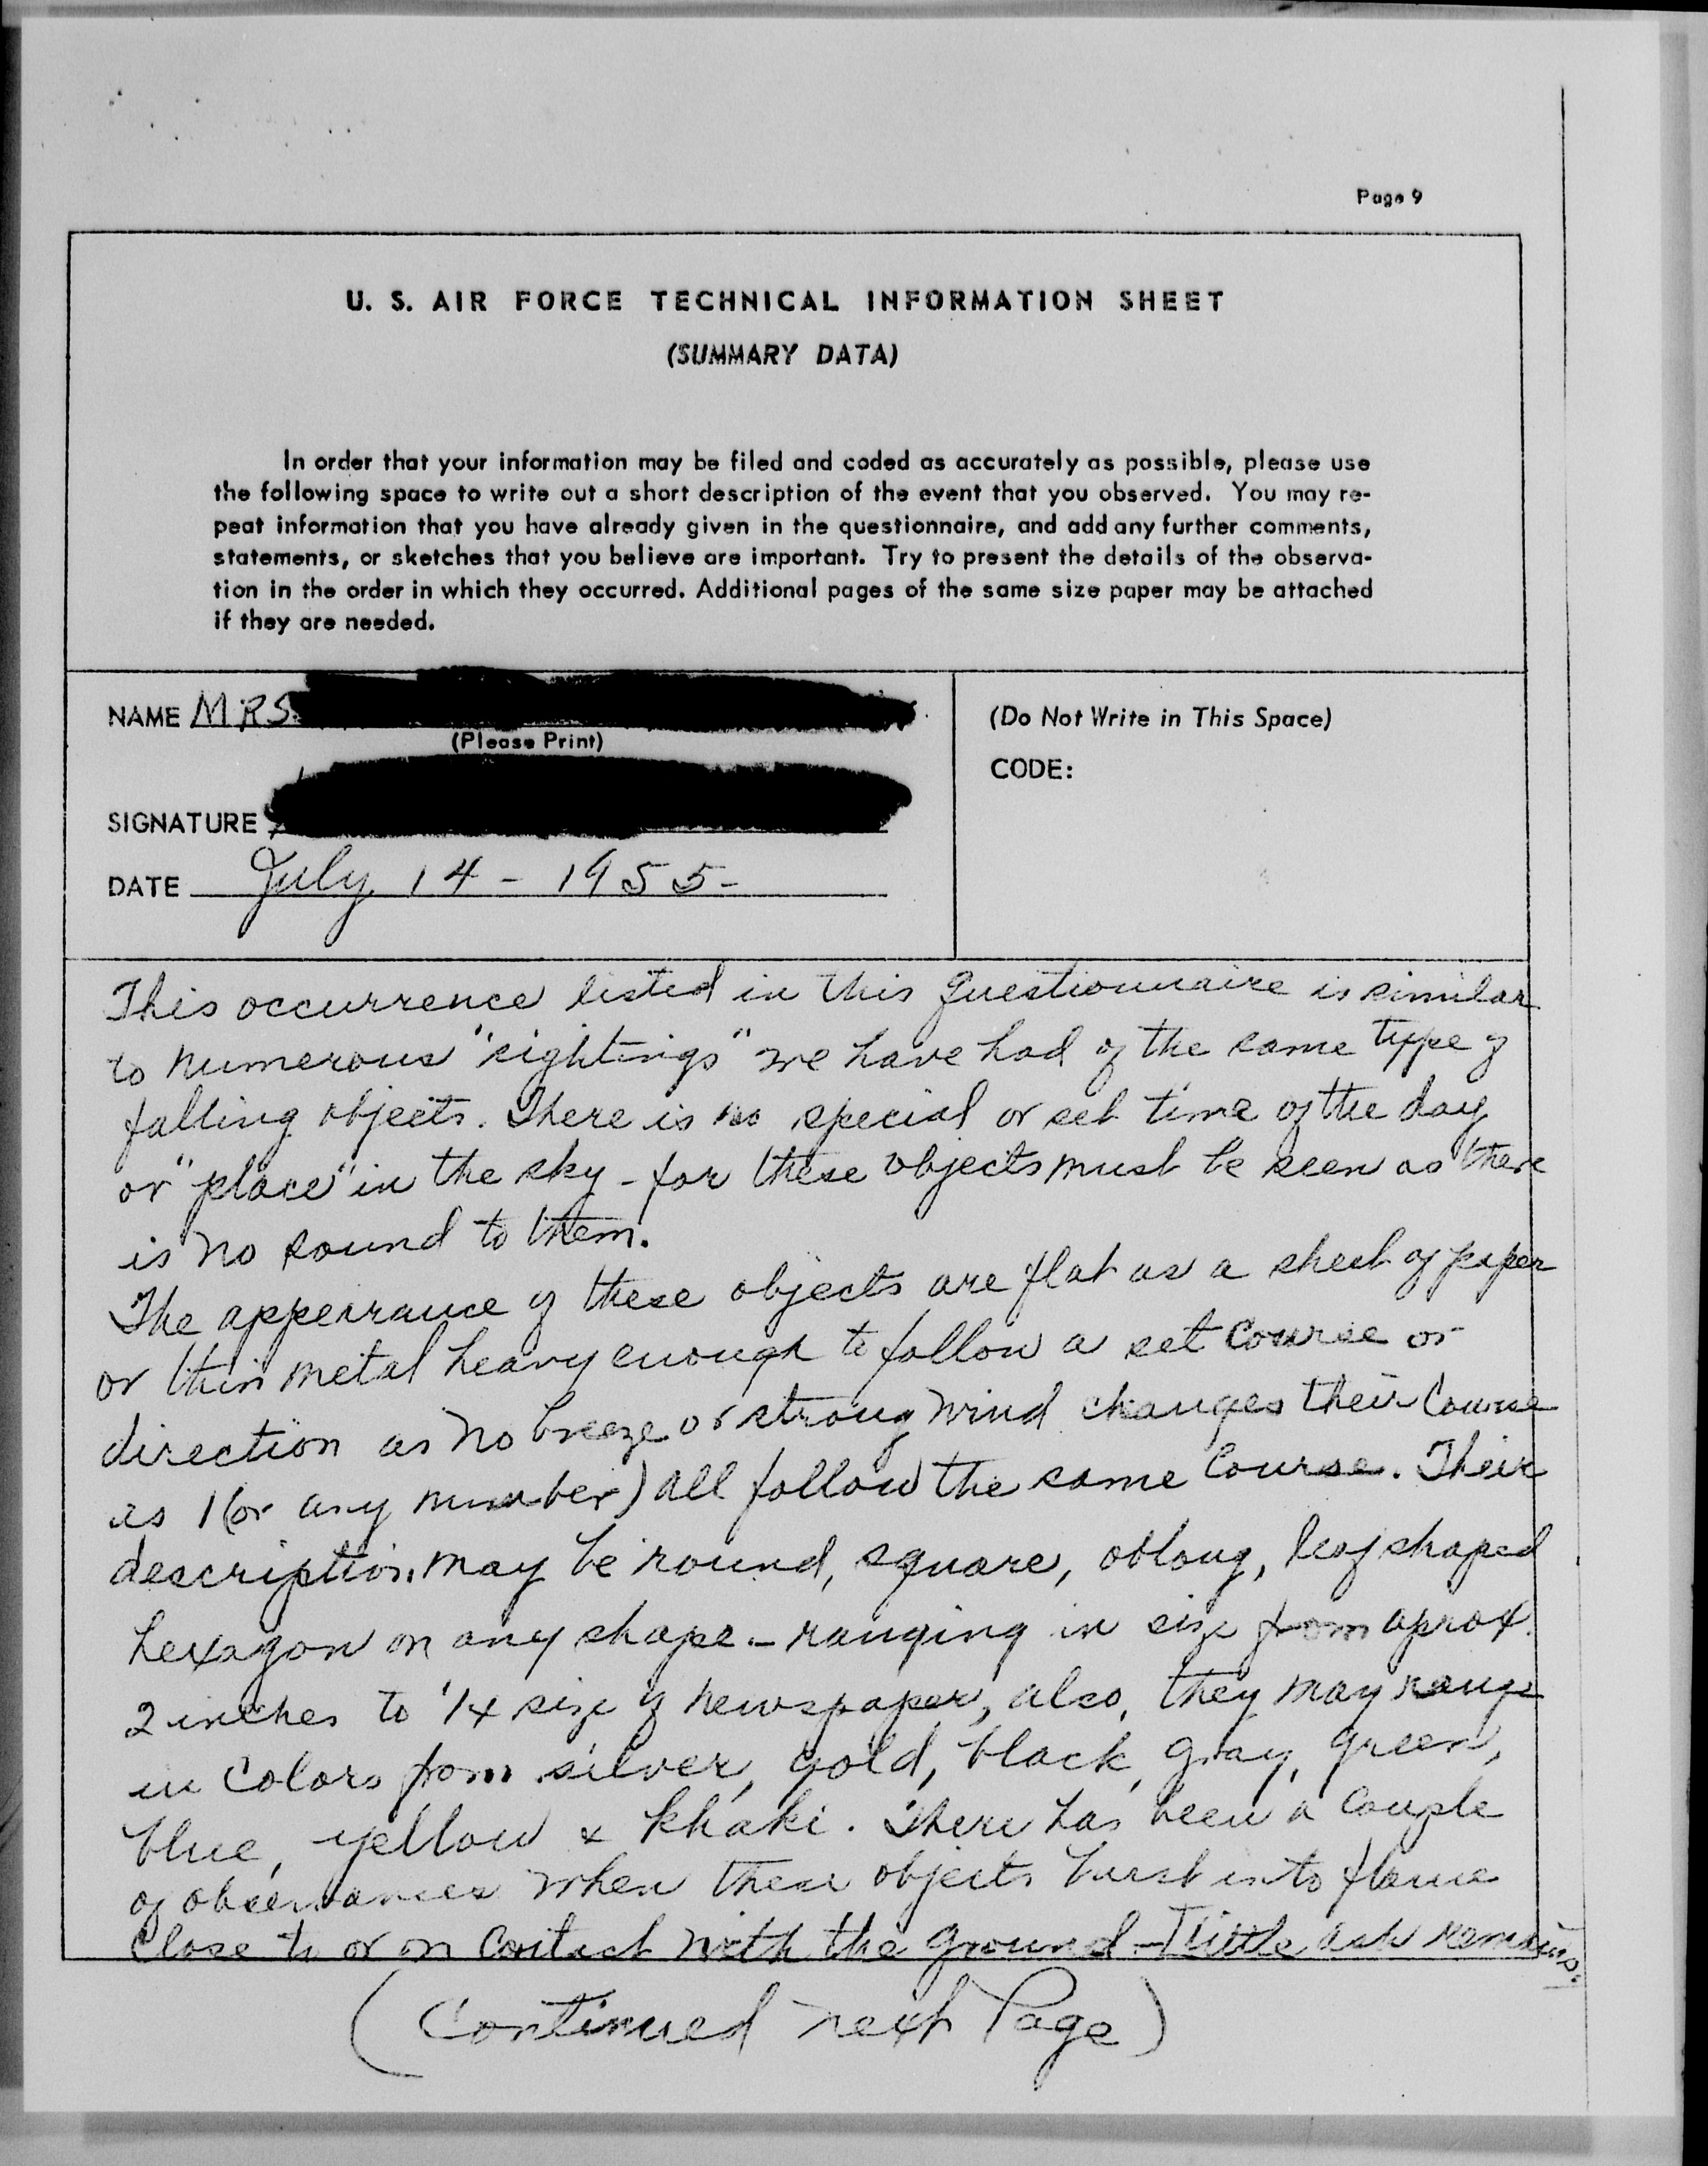 Page 9
U. S. AIR FORCE TECHNICAL INFORMATION SHEET
(SUMMARY DATA)
In order that your information may be filed and coded as accurately as possible, please use
the following space to write out a short description of the event that you observed. You may re-
peat information that you have already given in the questionnaire, and add any further comments,
statements, or sketches that you believe are important. Try to present the details of the observa-
tion in the order in which they occurred. Additional pages of the same size paper may be attached
if they are needed.
NAME MRS.
(Please Print)
SIGNATURE
DATE July 14 - 1955-
(Do Not Write in This Space)
CODE:
This occurrence listed in this questionnaire is similar
to numerous "sightings" we have had of the same type of
falling objects. There is no special or set time of the day
or "place" in the sky - for these objects must be seen as there
is no sound to them.
The appearance of these objects are flat as a sheet of paper
or thin metal heavy enough to follow a set course or
direction as no breeze or strong wind changes their course
as 1 (or any number) all follow the same course. Their
description may be round, square, oblong, leaf shaped
hexagon or any shape - ranging in size from aprox.
2 inches to 1/4 size of newspaper, also, they may range
in colors from silver, gold, black, gray, green,
blue, yellow & khaki. There has been a couple
of observances when these objects burst into flame
close to or on contact with the ground - little ash remains.
(Continued next Page)